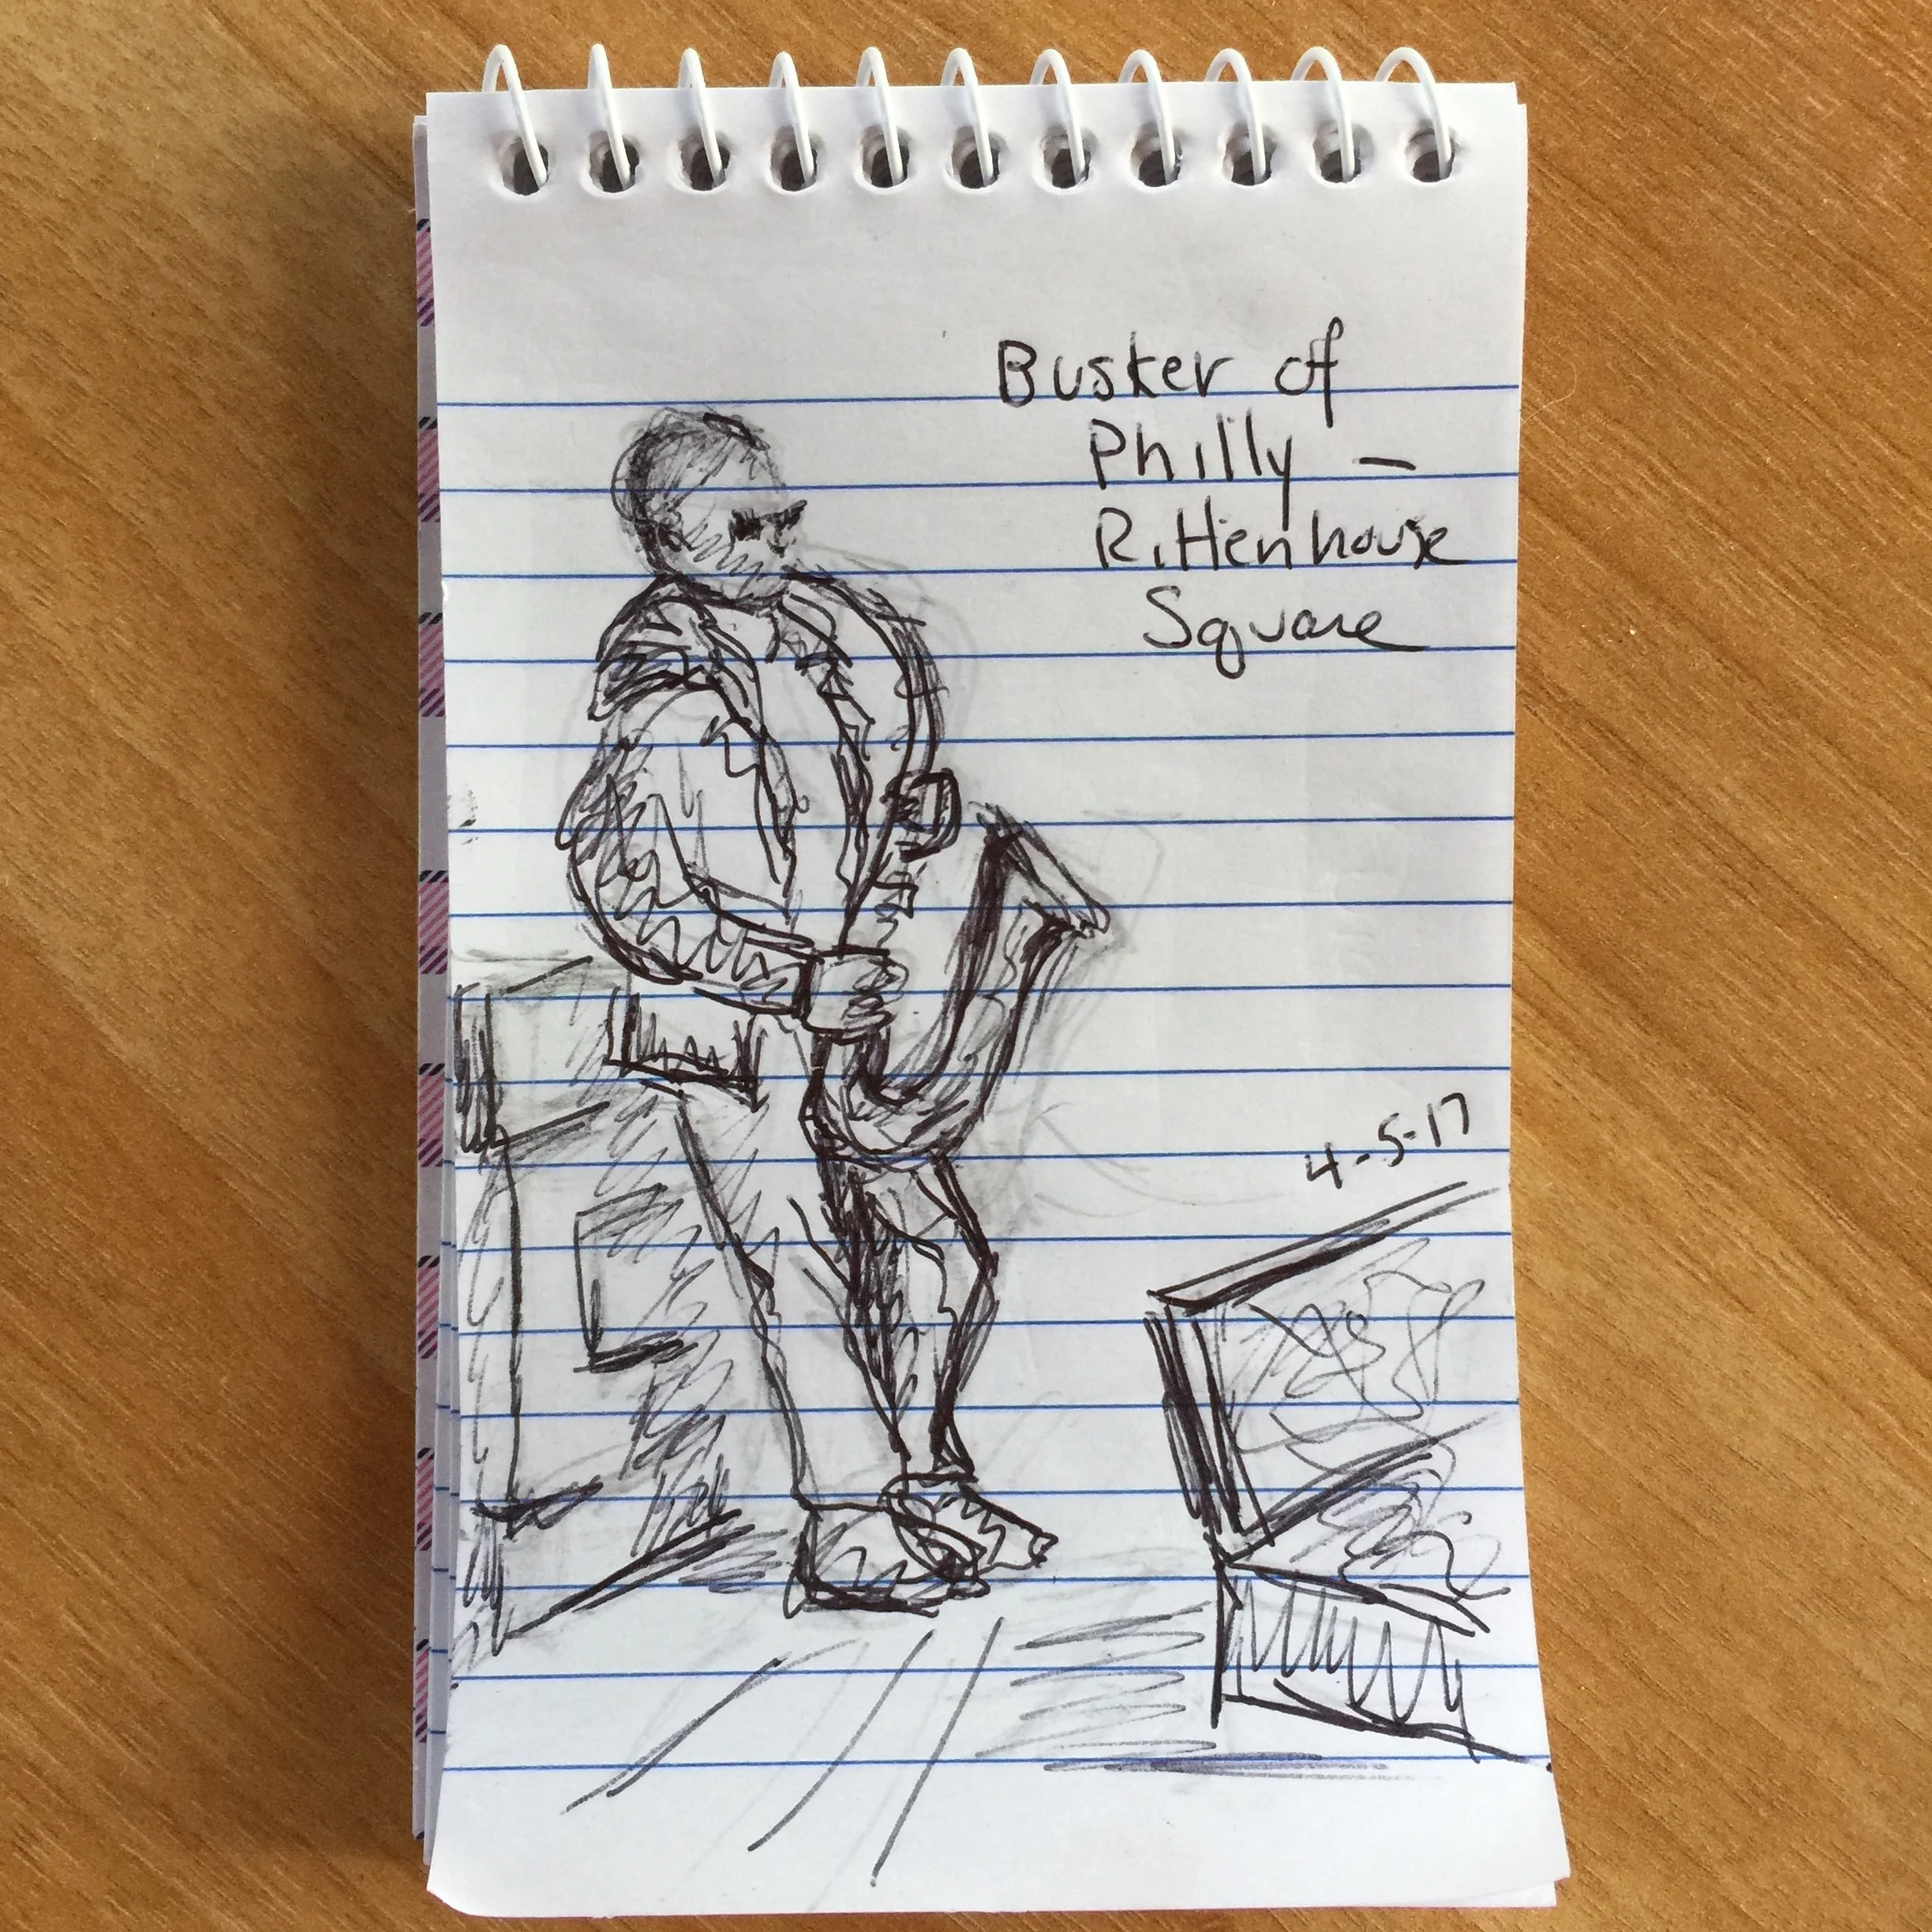 Busker of
Philly –
Rittenhouse
Square
4-5-17